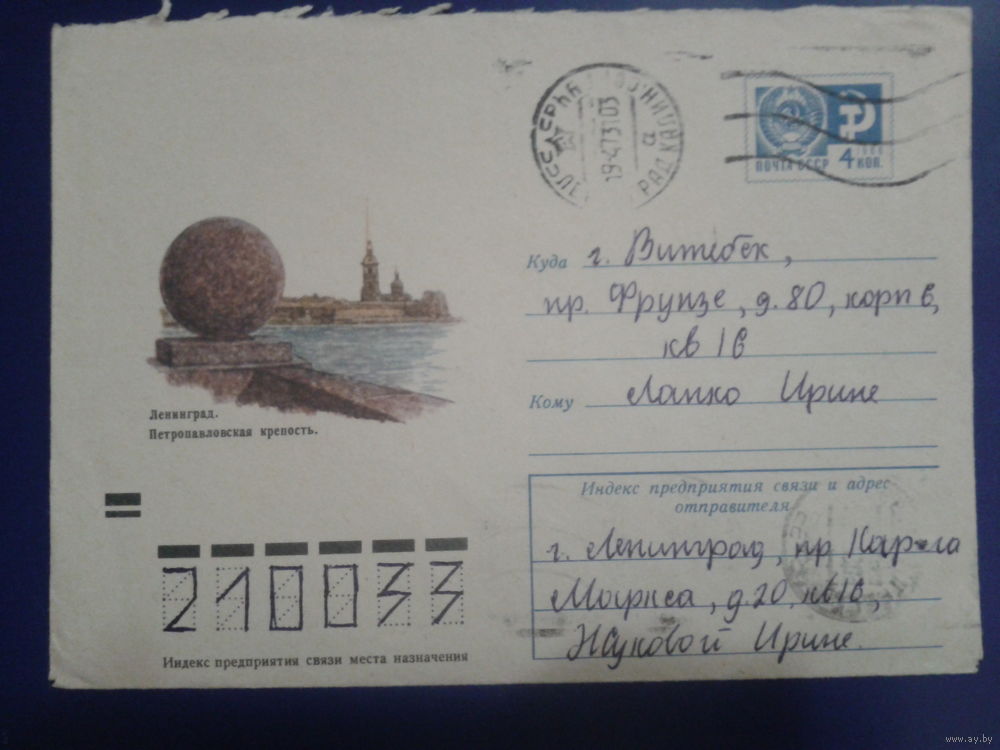 ПОЧТА СССР 4 КОП.
Куда г. Витебск,
пр. Фрунзе, д. 80, корп 6,
кв 16
Кому Лапко Ирине
Ленинград.
Петропавловская крепость.
Индекс предприятия связи и адрес
отправителя
г. Ленинград, пр Карла
Маркса, д. 20, кв 16,
Жуковой Ирине.
210033
Индекс предприятия связи места назначения
www.ay.by